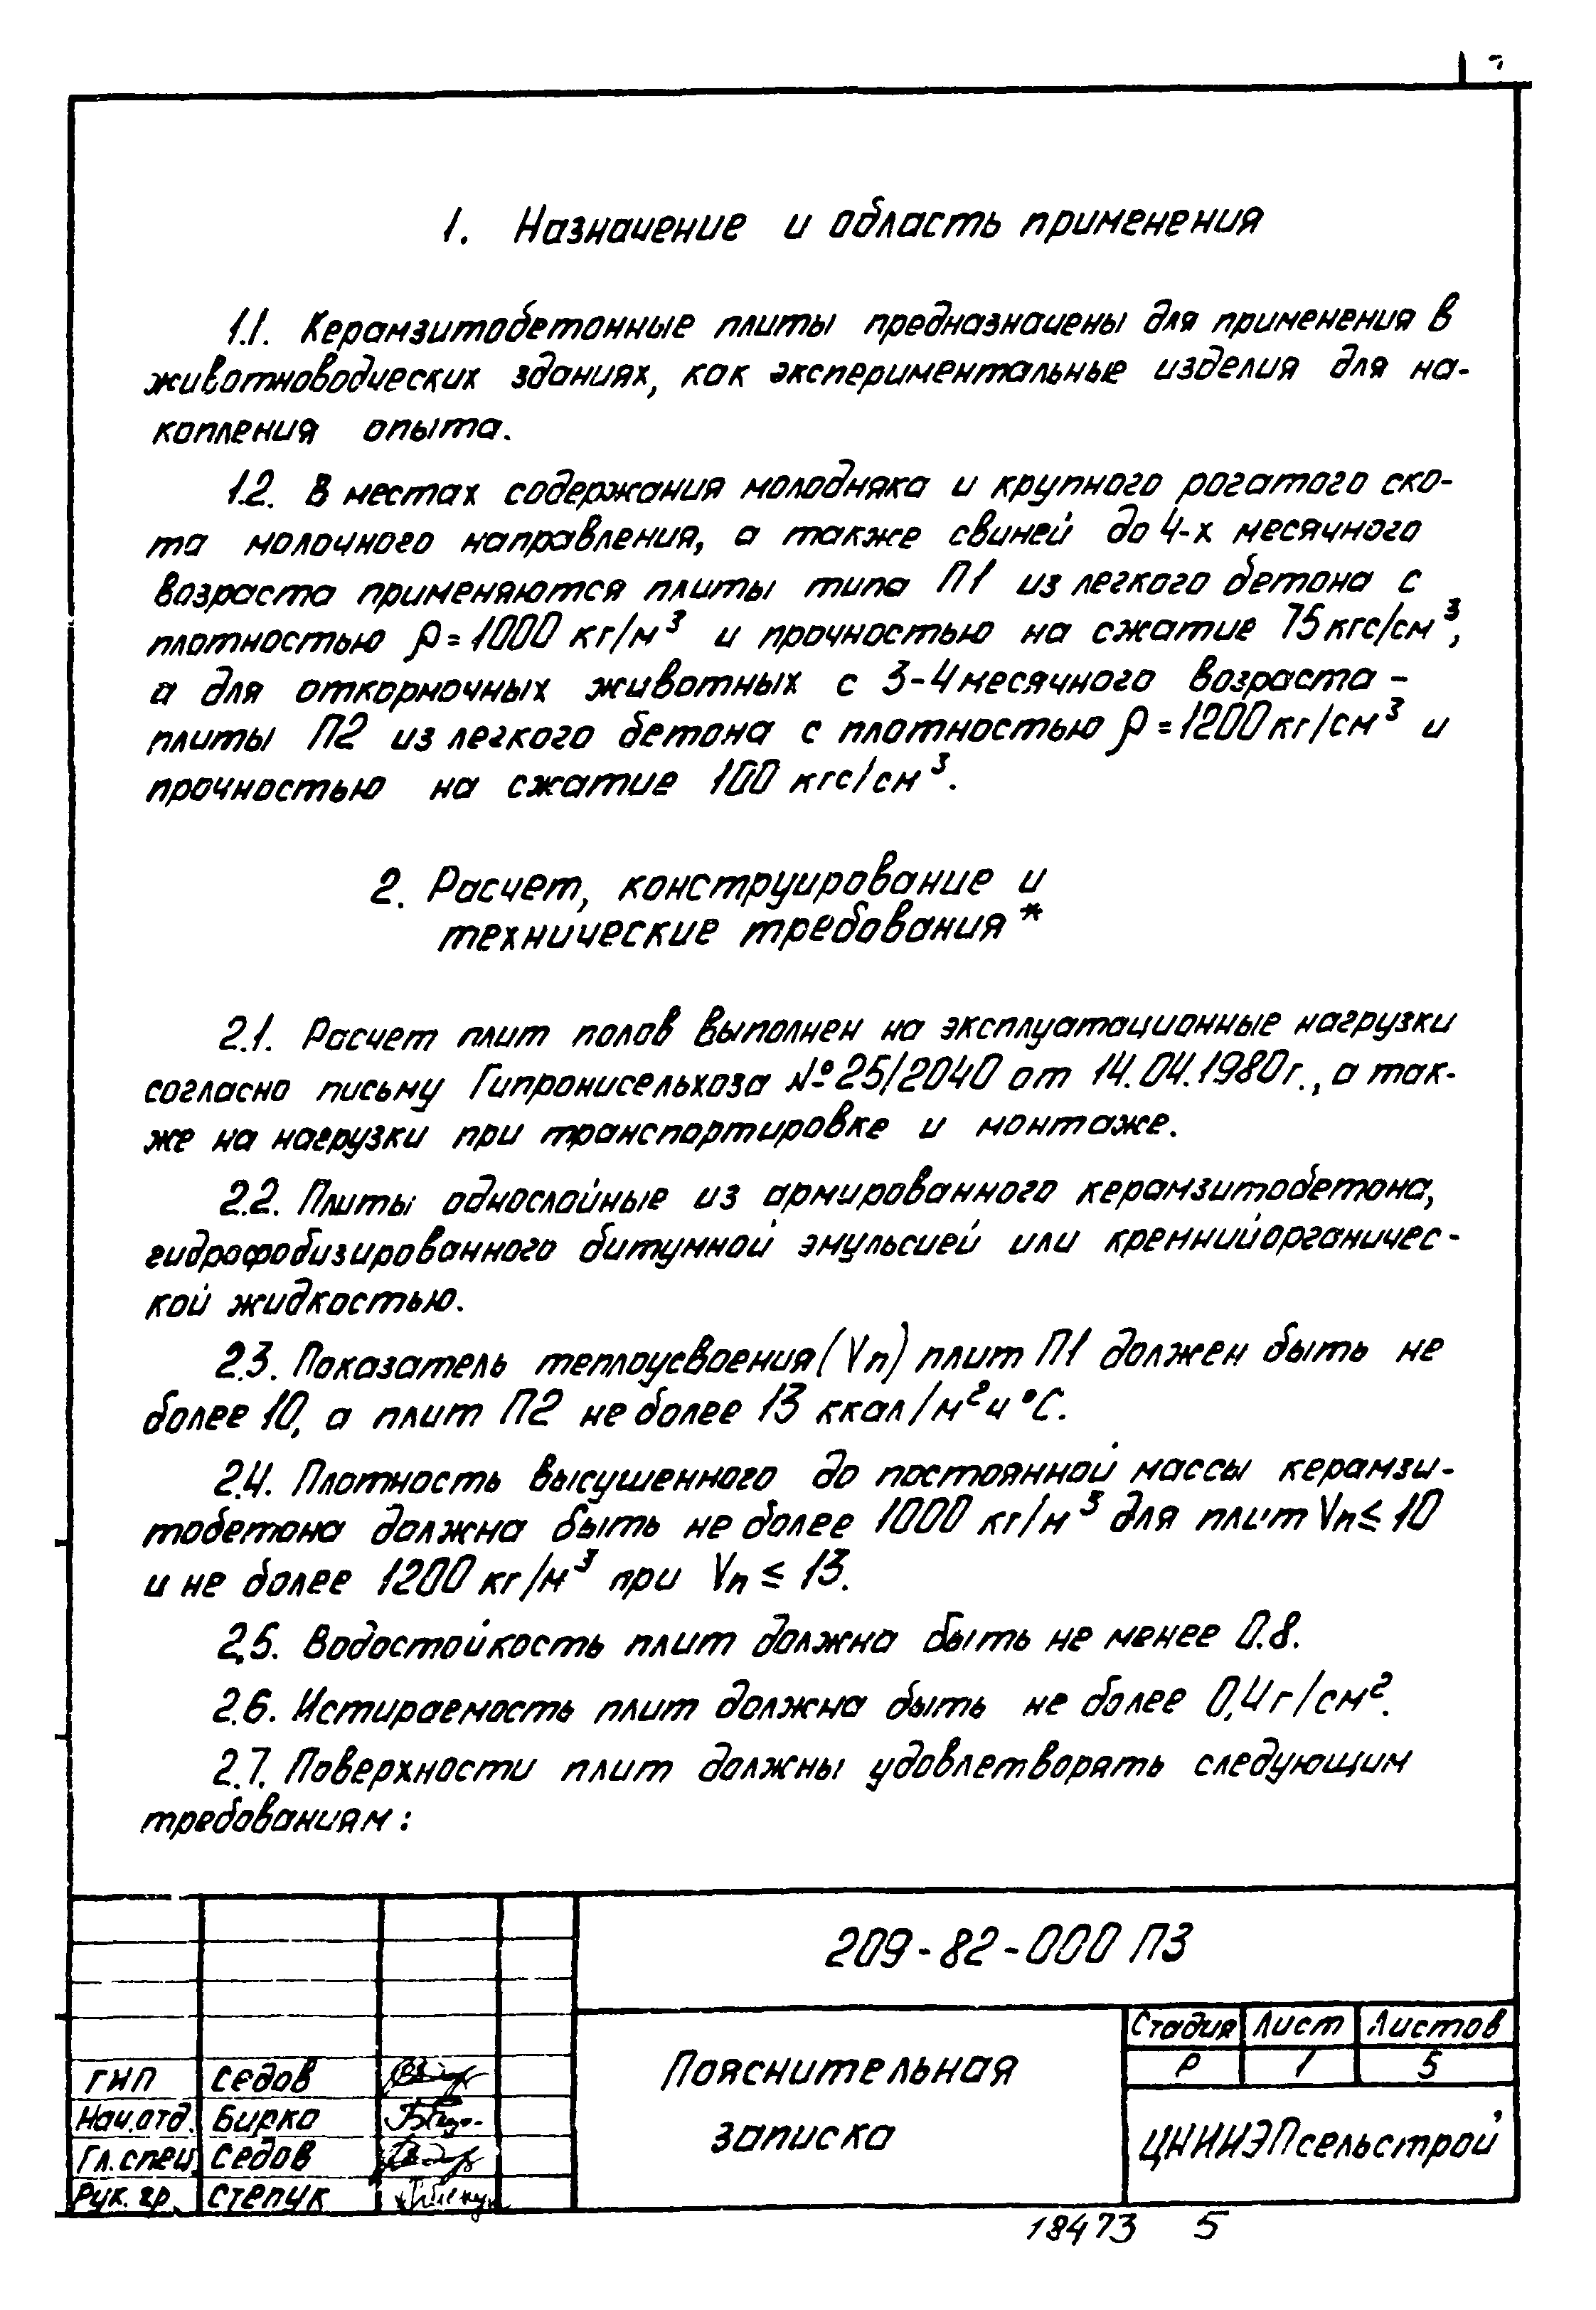 1. Назначение и область применения
1.1. Керамзитобетонные плиты предназначены для применения в
животноводческих зданиях, как экспериментальные изделия для на-
копления опыта.
1.2. В местах содержания молодняка и крупного рогатого ско-
та молочного направления, а также свиней до 4-х месячного
возраста применяются плиты типа П1 из легкого бетона с
плотностью ρ=1000 кг/м³ и прочностью на сжатие 75 кгс/см³,
а для откормочных животных с 3-4 месячного возраста -
плиты П2 из легкого бетона с плотностью ρ=1200 кг/см³ и
прочностью на сжатие 100 кгс/см³.
2. Расчет, конструирование и
технические требования*
2.1. Расчет плит полов выполнен на эксплуатационные нагрузки
согласно письму Гипронисельхоза №25/2040 от 14.04.1980г., а так-
же на нагрузки при транспортировке и монтаже.
2.2. Плиты однослойные из армированного керамзитобетона,
гидрофобизированного битумной эмульсией или кремнийорганичес-
кой жидкостью.
2.3. Показатель теплоусвоения (Yп) плит П1 должен быть не
более 10, а плит П2 не более 13 ккал/м²ч°С.
2.4. Плотность высушенного до постоянной массы керамзи-
тобетона должна быть не более 1000 кг/м³ для плит Yп≤10
и не более 1200 кг/м³ при Yп≤13.
2.5. Водостойкость плит должна быть не менее 0.8.
2.6. Истираемость плит должна быть не более 0,4г/см².
2.7. Поверхности плит должны удовлетворять следующим
требованиям:
209-82-000 ПЗ
Пояснительная
записка
Стадия Лист Листов
Р 1 5
ЦНИИЭПсельстрой
ГИП Седов
Нач.отд. Бирко
Гл.спец. Седов
Рук.гр. Степук
18473 5